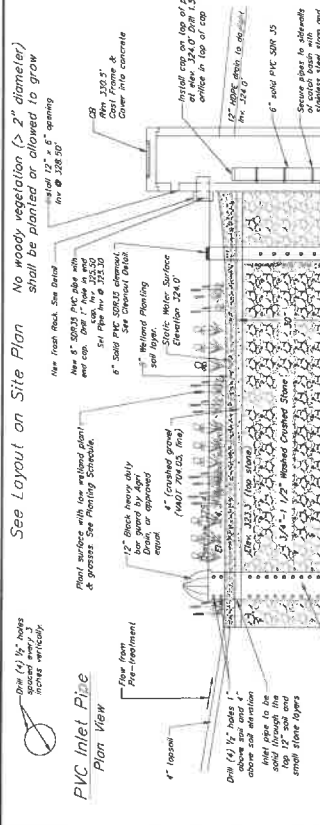 See Layout on Site Plan
No woody vegetation (> 2" diameter)
shall be planted or allowed to grow
Drill (4) ½" holes
spaced every 3
inches vertically.
PVC Inlet Pipe
Plan View
Flow from
Pre-treatment
4" topsoil
Drill (4) ½" holes 1"
above soil and 4"
above soil elevation
Inlet pipe to be
solid through the
top 12" soil and
small stone layers
Plant surface with low wetland plants
& grasses. See Planting Schedule.
12" Black heavy duty
bar guard by Agri
Drain, or approved
equal
4" (crushed gravel
(VAOT 704.05, fine)
Elev. 323.3' (top stone)
3/4" - 1 1/2" Washed Crushed Stone
30"
New Trash Rack. See Detail
Install 12" x 6" opening
Inv @ 328.50'
New 6" SDR35 PVC pipe with
end cap. Drill 1" hole in end
cap. Inv 325.30
Set Pipe Inv @ 325.30
6" Solid PVC SDR35 cleanout.
See Cleanout Detail
8" Wetland Planting
soil layer.
Static Water Surface
Elevation 324.0'
CB
Rim 330.5'
Cast Frame &
Cover into concrete
Install cap on top of
at elev. 324.0' Drill 1.5"
orifice in top of cap
12" HDPE drain to
Inv. 324.0'
6" solid PVC SDR 35
Secure pipes to sidewalls
of catch basin with
stainless steel strap and